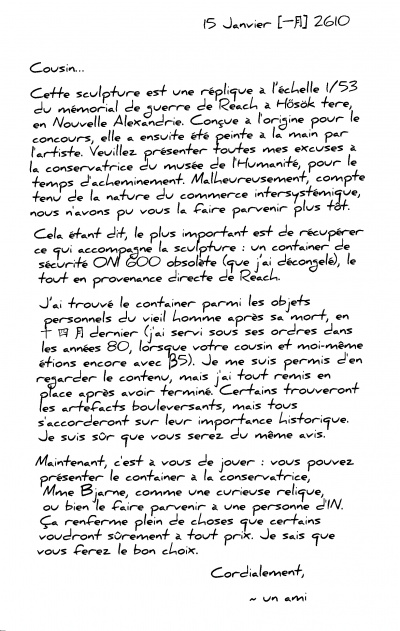 15 Janvier [一月] 2610
Cousin...
Cette sculpture est une réplique à l'échelle 1/53
du mémorial de guerre de Reach à Hősök tere,
en Nouvelle Alexandrie. Conçue à l'origine pour le
concours, elle a ensuite été peinte à la main par
l'artiste. Veuillez présenter toutes mes excuses à
la conservatrice du musée de l'Humanité, pour le
temps d'acheminement. Malheureusement, compte
tenu de la nature du commerce intersystémique,
nous n'avons pu vous la faire parvenir plus tôt.
Cela étant dit, le plus important est de récupérer
ce qui accompagne la sculpture : un container de
sécurité ONI 600 obsolète (que j'ai décongelé), le
tout en provenance directe de Reach.
J'ai trouvé le container parmi les objets
personnels du vieil homme après sa mort, en
十四月 dernier (j'ai servi sous ses ordres dans
les années 80, lorsque votre cousin et moi-même
étions encore avec β5). Je me suis permis d'en
regarder le contenu, mais j'ai tout remis en
place après avoir terminé. Certains trouveront
les artefacts bouleversants, mais tous
s'accorderont sur leur importance historique.
Je suis sûr que vous serez du même avis.
Maintenant, c'est à vous de jouer : vous pouvez
présenter le container à la conservatrice,
Mme Bjarne, comme une curieuse relique,
ou bien le faire parvenir à une personne d'IN.
Ça renferme plein de choses que certains
voudront sûrement à tout prix. Je sais que
vous ferez le bon choix.
Cordialement,
~ un ami